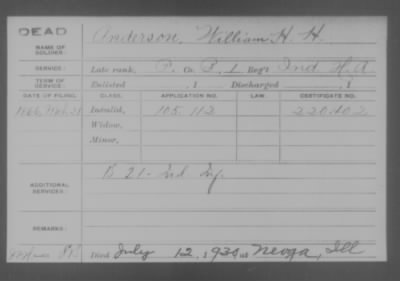 DEAD
NAME OF SOLDIER: Anderson, William H. H.
SERVICE: Late rank, P. Co. B, 1 Reg't Ind H. A
TERM OF SERVICE: Enlisted , 1 Discharged , 1
DATE OF FILING. CLASS. APPLICATION NO. LAW. CERTIFICATE NO.
1866 Feb. 21 Invalid, 105.112 220.402
Widow,
Minor,
ADDITIONAL SERVICES: B 21. Ind Inf.
REMARKS:
Died July 12, 1930 at Neoga, Ill